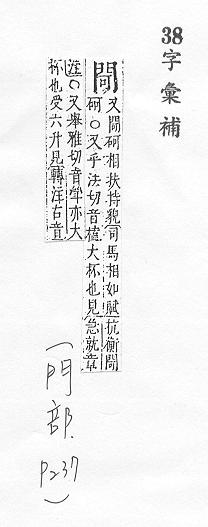 38字彙補
閜
又閜砢相扶持貌司馬相如賦抗衡閜
砢○又乎法切音榼大杯也見急就章
注○又舉雅切音斝亦大
杯也受六升見轉注古音
(門部 P237)